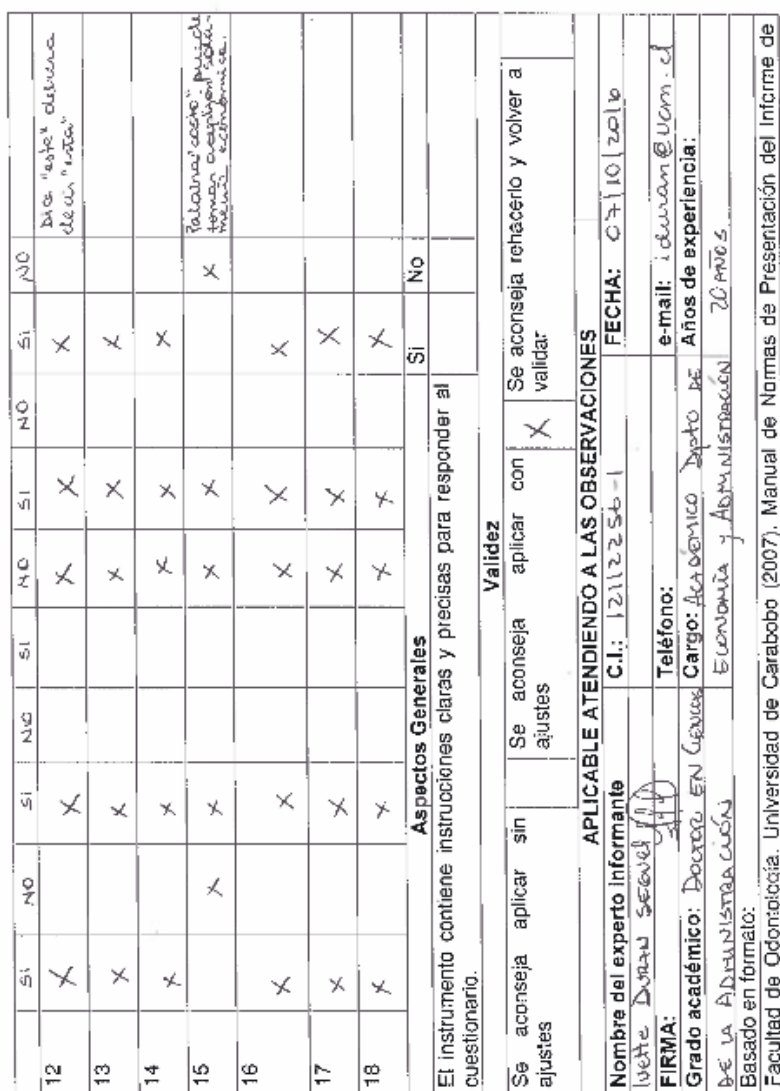 Si NO Si NO SI NO SI NO Si NO
12 X X X X X Dice "este" debiera
decir "esta"
13 X X X X X
14 X X X X X
15 X X X X X Palabra "costo" puede
tomar acepción sola-
mente económica.
16 X X X X X
17 X X X X X
18 X X X X X
Aspectos Generales Si No
El instrumento contiene instrucciones claras y precisas para responder al
cuestionario.
Validez
Se aconseja aplicar sin
ajustes
Se aconseja aplicar con
ajustes
X
Se aconseja rehacerlo y volver a
validar
APLICABLE ATENDIENDO A LAS OBSERVACIONES
Nombre del experto informante C.I.: 12112256-1 FECHA: 07/10/2016
Ivette DURÁN SEGUEL
FIRMA: Teléfono: e-mail: iduran@ucm.cl
Grado académico: DOCTOR EN CIENCIAS Cargo: ACADÉMICO DPTO DE Años de experiencia:
DE LA ADMINISTRACIÓN ECONOMÍA Y ADMINISTRACIÓN 20 AÑOS
Basado en formato:
Facultad de Odontología. Universidad de Carabobo (2007). Manual de Normas de Presentación del Informe de